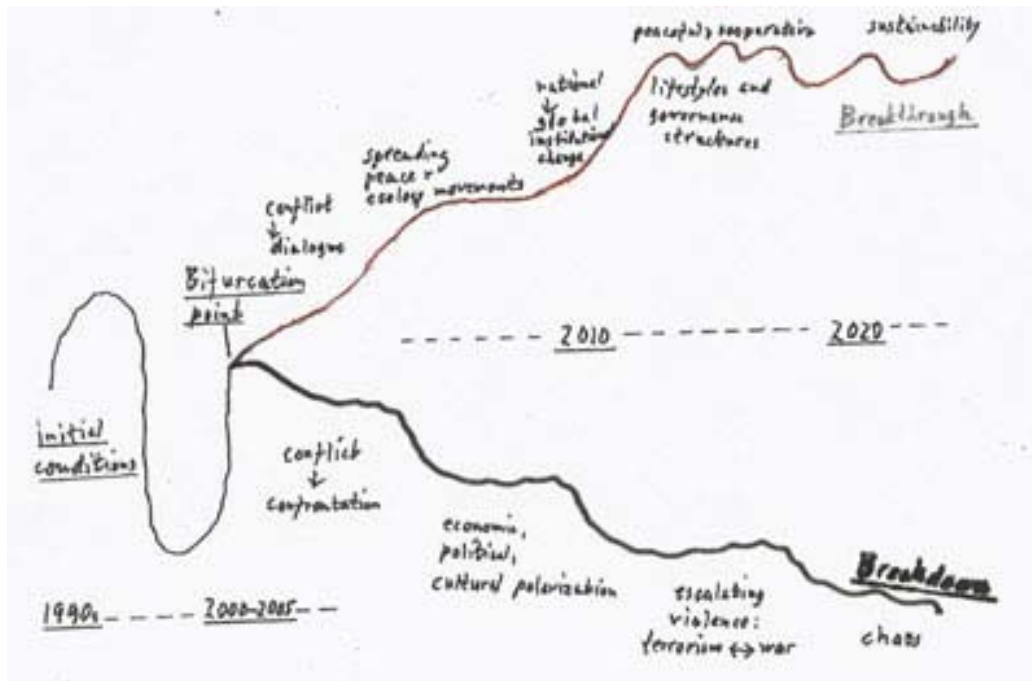 peaceful, cooperative
sustainability
national
↓
global
institutional
change
lifestyles and
governance
structures
Breakthrough
spreading
peace +
ecology movements
conflict
↓
dialogue
Bifurcation
point
2010
2020
initial
conditions
conflict
↓
confrontation
economic,
political,
cultural polarization
escalating
violence:
terrorism ↔ war
Breakdown
chaos
1990s
2000-2005